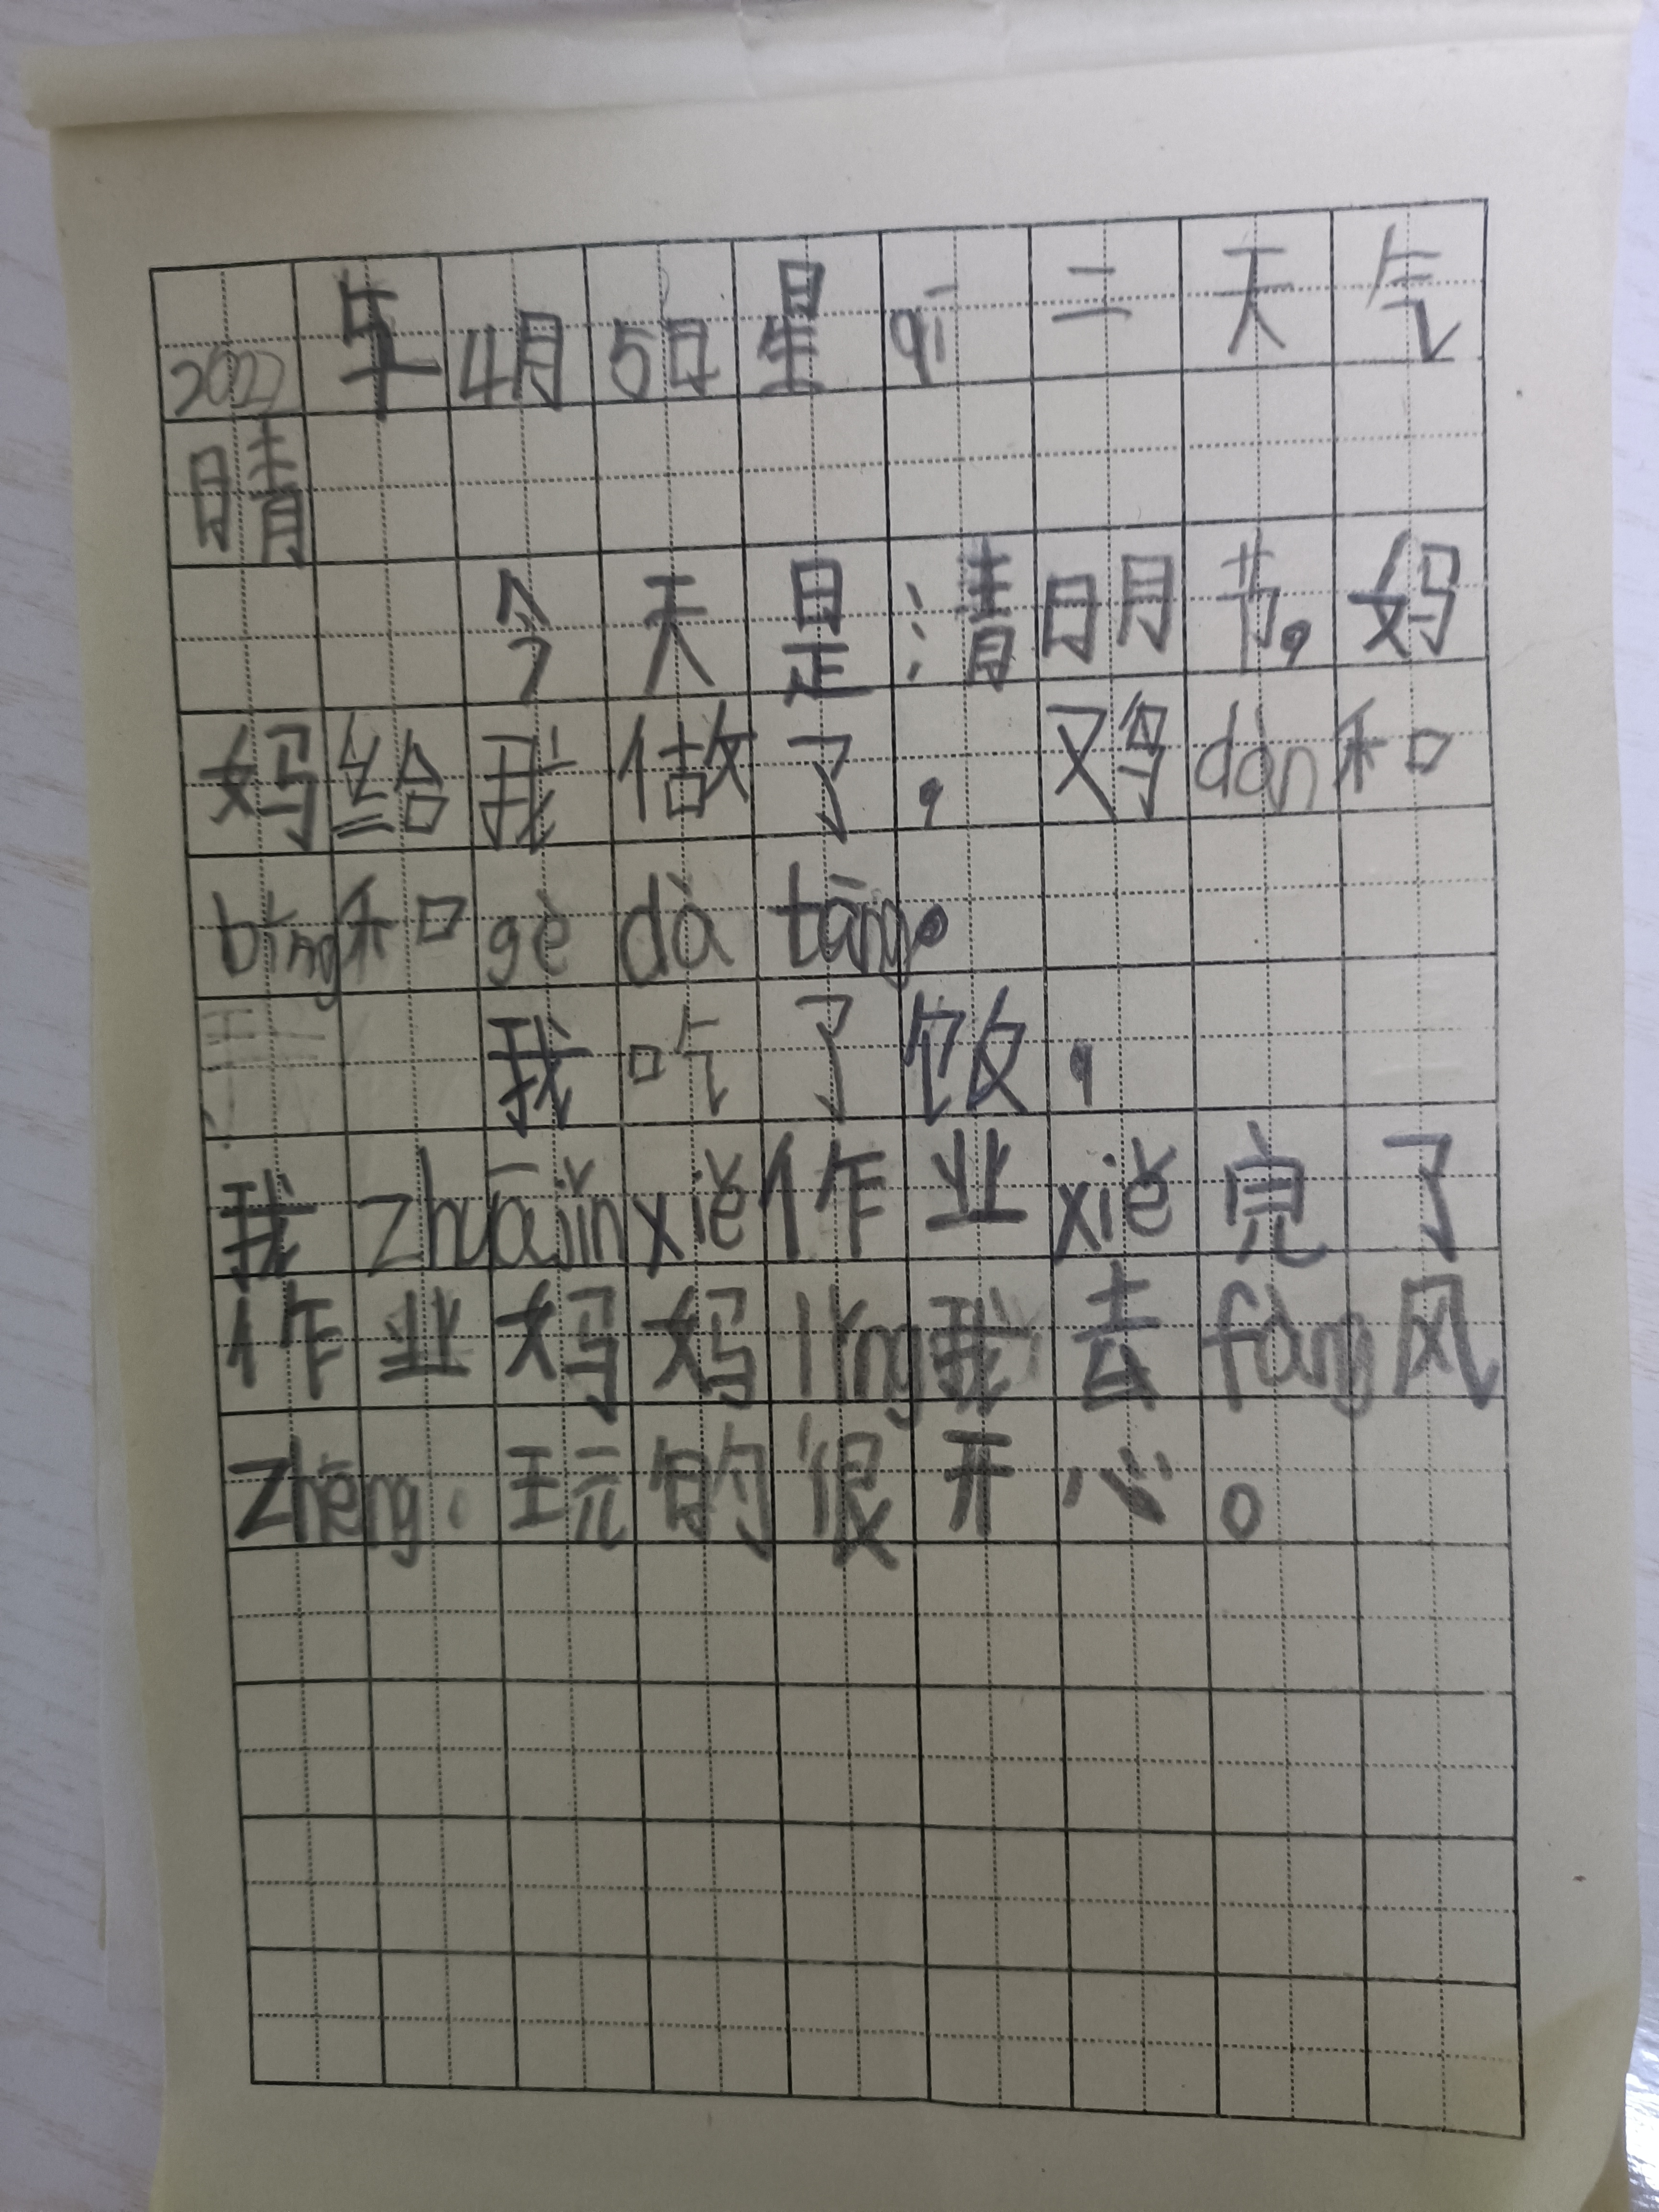 2022年4月5日星qī二天气
晴
今天是清明节，妈
妈给我做了，鸡dàn和
bǐng和gè dà tāng。
我吃了饭，
我zhuājǐnxiě作业xiě完了
作业妈妈lǐng我去fàng风
zhēng。玩的很开心。